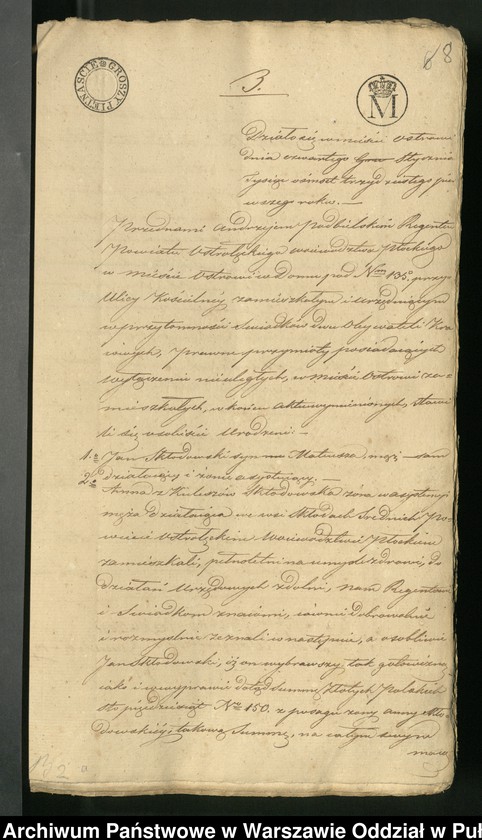 GROSZY PIETNAŚCIE
M
68
3.
Działo się w mieście Ostrowi
dnia czwartego Stycznia
tysiąc ośmset trzydziestego pier
wszego roku. —
Przedemną Andrzejem Podbielskim Regentem
Powiatu Ostrołęckiego Województwa Płockiego
w mieście Ostrowi w Domu pod Nrem 135. przy
Ulicy Kościelnej zamieszkałym i urzędującym
w przytomności Świadków dwu Obywateli Kra
iowych, prawem przymioty posiadaiących
wyłączeniu nieuległych, w mieście Ostrowi za-
mieszkałych, w końcu Aktu wymienionych, stawi
li się osobiście Urodzeni: —
1.o Jan Skłodowski syn Mateusza, mąż — sam
działaiący i żonie asystuiący. —
2.o Anna z Kuleszów Skłodowska żona w asystencyi
męża działaiąca we wsi Skłodach Średnich Po-
wiecie Ostrołęckim Województwie Płockiem
zamieszkali, pełnoletni na umyśle zdrowi, do
działań Urzędowych zdolni, nam Regentowi
i Świadkom znaiomi, iawnie dobrowolnie
i rozmyślnie zeznali co następuie, a osobliwie
Jan Skłodowski, iż on wybrawszy tak gotowizną
iako i w wyprawie dotąd summę Złotych Polskich
sto pięćdziesiąt Nro 150. z posagu żony Anny Skło-
dowskiéy takową Summę, na całym swym
maią
2
Archiwum Państwowe w Warszawie Oddział w Puł